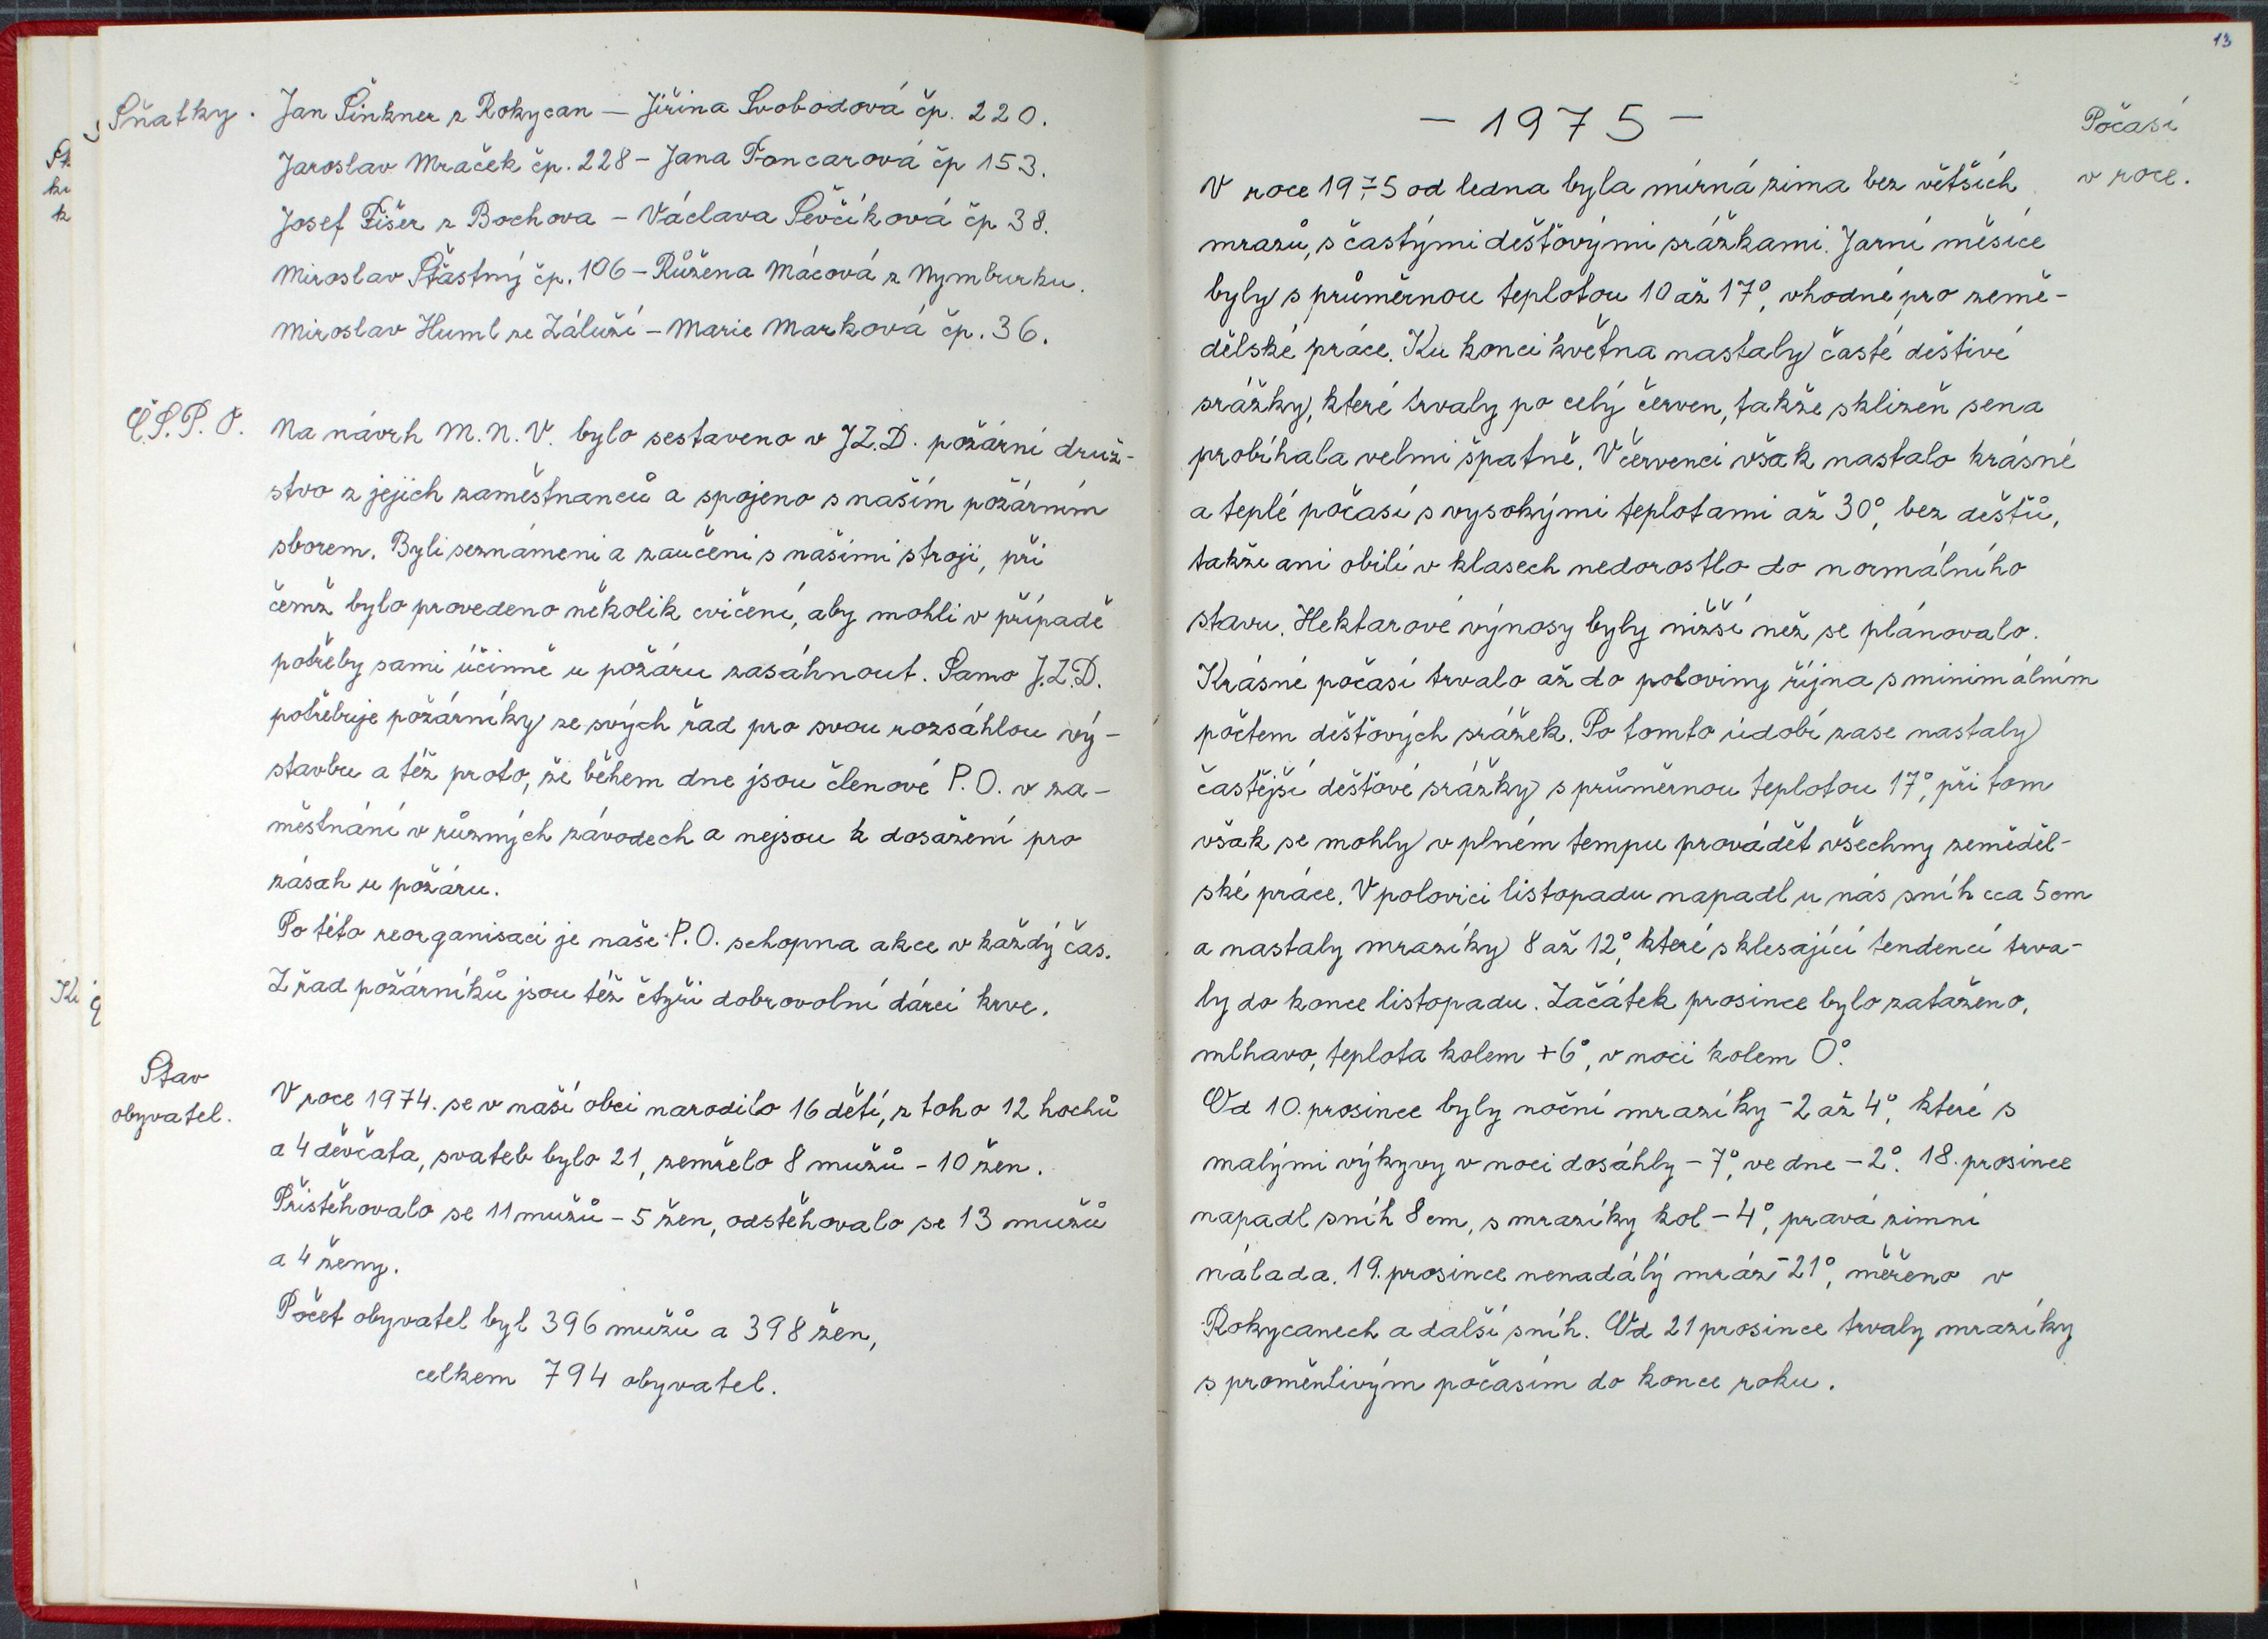 Sňatky.
Jan Šinkner z Rokycan – Jiřina Svobodová čp. 220.
Jaroslav Mráček čp. 228 – Jana Foncarová čp 153.
Josef Fišer z Bochova – Václava Ševčíková čp 38.
Miroslav Šťastný čp. 106 – Růžena Mácová z Nymburku.
Miroslav Huml ze Záluží – Marie Marková čp. 36.
Č.S.P.O.
Na návrh M.N.V. bylo sestaveno v JZ.D. požární druž-
stvo z jejich zaměstnanců a spojeno s naším požárním
sborem. Byli seznámeni a zaučeni s našimi stroji, při
čemž bylo provedeno několik cvičení, aby mohli v případě
potřeby sami účinně u požáru zasáhnout. Samo J.Z.D.
potřebuje požárníky ze svých řad pro svou rozsáhlou vý-
stavbu a též proto, že během dne jsou členové P.O. v za-
městnání v různých závodech a nejsou k dosažení pro
zásah u požáru.
Po této reorganisaci je naše P.O. schopna akce v každý čas.
Z řad požárníků jsou též čtyři dobrovolní dárci krve.
Stav
obyvatel.
V roce 1974. se v naší obci narodilo 16 dětí, z toho 12 hochů
a 4 děvčata, svateb bylo 21, zemřelo 8 mužů – 10 žen.
Přistěhovalo se 11 mužů – 5 žen, odstěhovalo se 13 mužů
a 4 ženy.
Počet obyvatel byl 396 mužů a 398 žen,
celkem 794 obyvatel.
13
– 1975 –
Počasí
v roce.
V roce 1975 od ledna byla mírná zima bez větších
mrazů, s častými dešťovými srážkami. Jarní měsíce
byly s průměrnou teplotou 10 až 17°, vhodné pro země-
dělské práce. Ku konci května nastaly časté deštivé
srážky, které trvaly po celý červen, takže sklizeň sena
probíhala velmi špatně. V červenci však nastalo krásné
a teplé počasí s vysokými teplotami až 30°, bez dešťů,
takže ani obilí v klasech nedorostlo do normálního
stavu. Hektarové výnosy byly nižší než se plánovalo.
Krásné počasí trvalo až do poloviny října s minimálním
počtem dešťových srážek. Po tomto údobí zase nastaly
častější dešťové srážky s průměrnou teplotou 17°, při tom
však se mohly v plném tempu provádět všechny zeměděl-
ské práce. V polovici listopadu napadl u nás sníh cca 5 cm
a nastaly mrazíky 8 až 12°, které s klesající tendencí trva-
ly do konce listopadu. Začátek prosince bylo zataženo,
mlhavo, teplota kolem +6°, v noci kolem 0°.
Od 10. prosince byly noční mrazíky –2 až 4°, které s
malými výkyvy v noci dosáhly –7°, ve dne –2°. 18. prosince
napadl sníh 8 cm, s mrazíky kol –4°, pravá zimní
nálada. 19. prosince nenadálý mráz –21°, měřeno v
Rokycanech a další sníh. Od 21 prosince trvaly mrazíky
s proměnlivým počasím do konce roku.